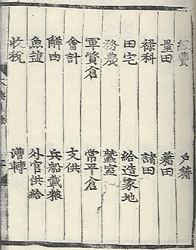 經費 戶籍
量田 籍田
祿科 諸田
田宅 給造家地
務農 蠶室
軍資倉 常平倉
會計 支供
解由 兵船載粮
魚鹽 外官供給
收稅 漕轉